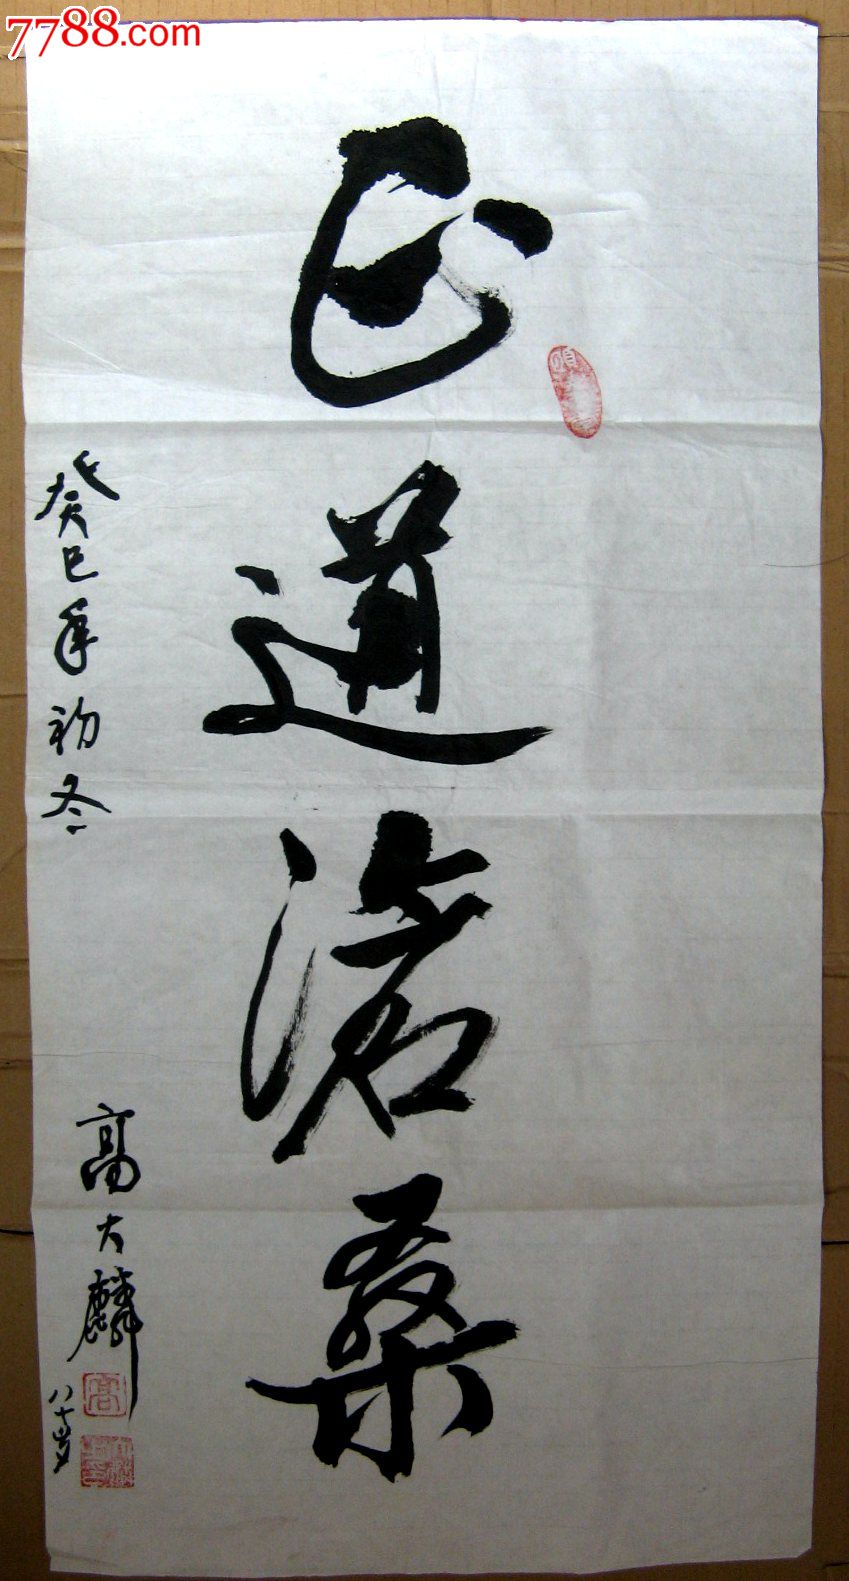 7788.com
正道沧桑
癸巳年初冬
高大麟
八十岁
高